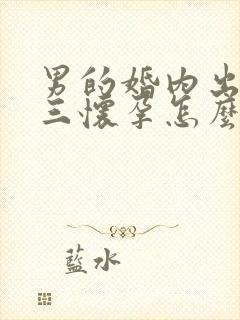 男的婚内出
三懷孕怎麼
藍水